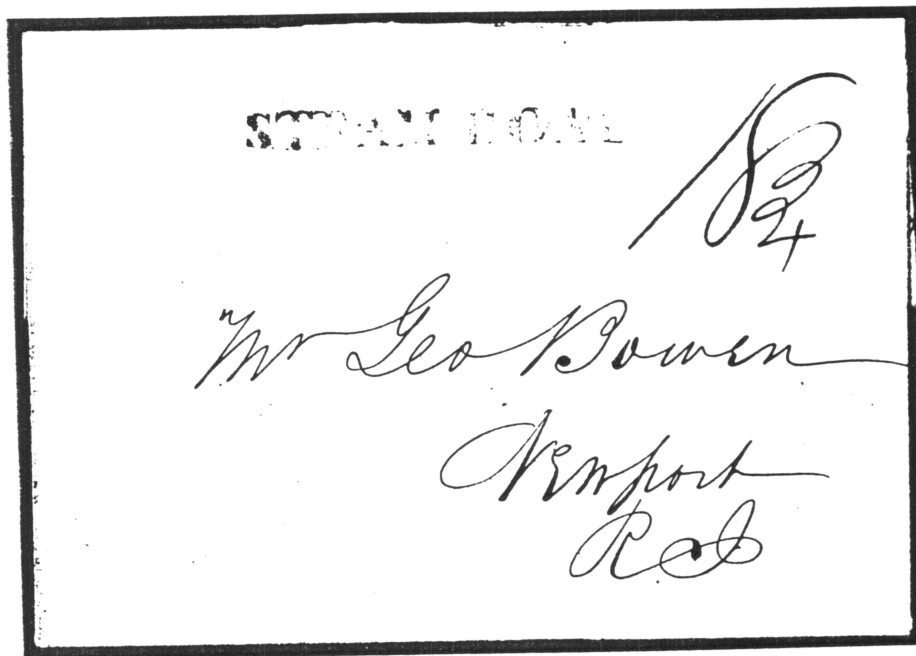 STEAM BOAT
18 3/4
Mr Geo Bowen
Newport
R I